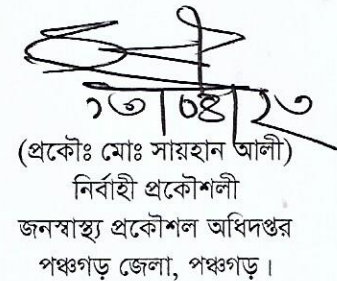 ১৩/০৪/২৩
(প্রকৌঃ মোঃ সায়হান আলী)
নির্বাহী প্রকৌশলী
জনস্বাস্থ্য প্রকৌশল অধিদপ্তর
পঞ্চগড় জেলা, পঞ্চগড়।